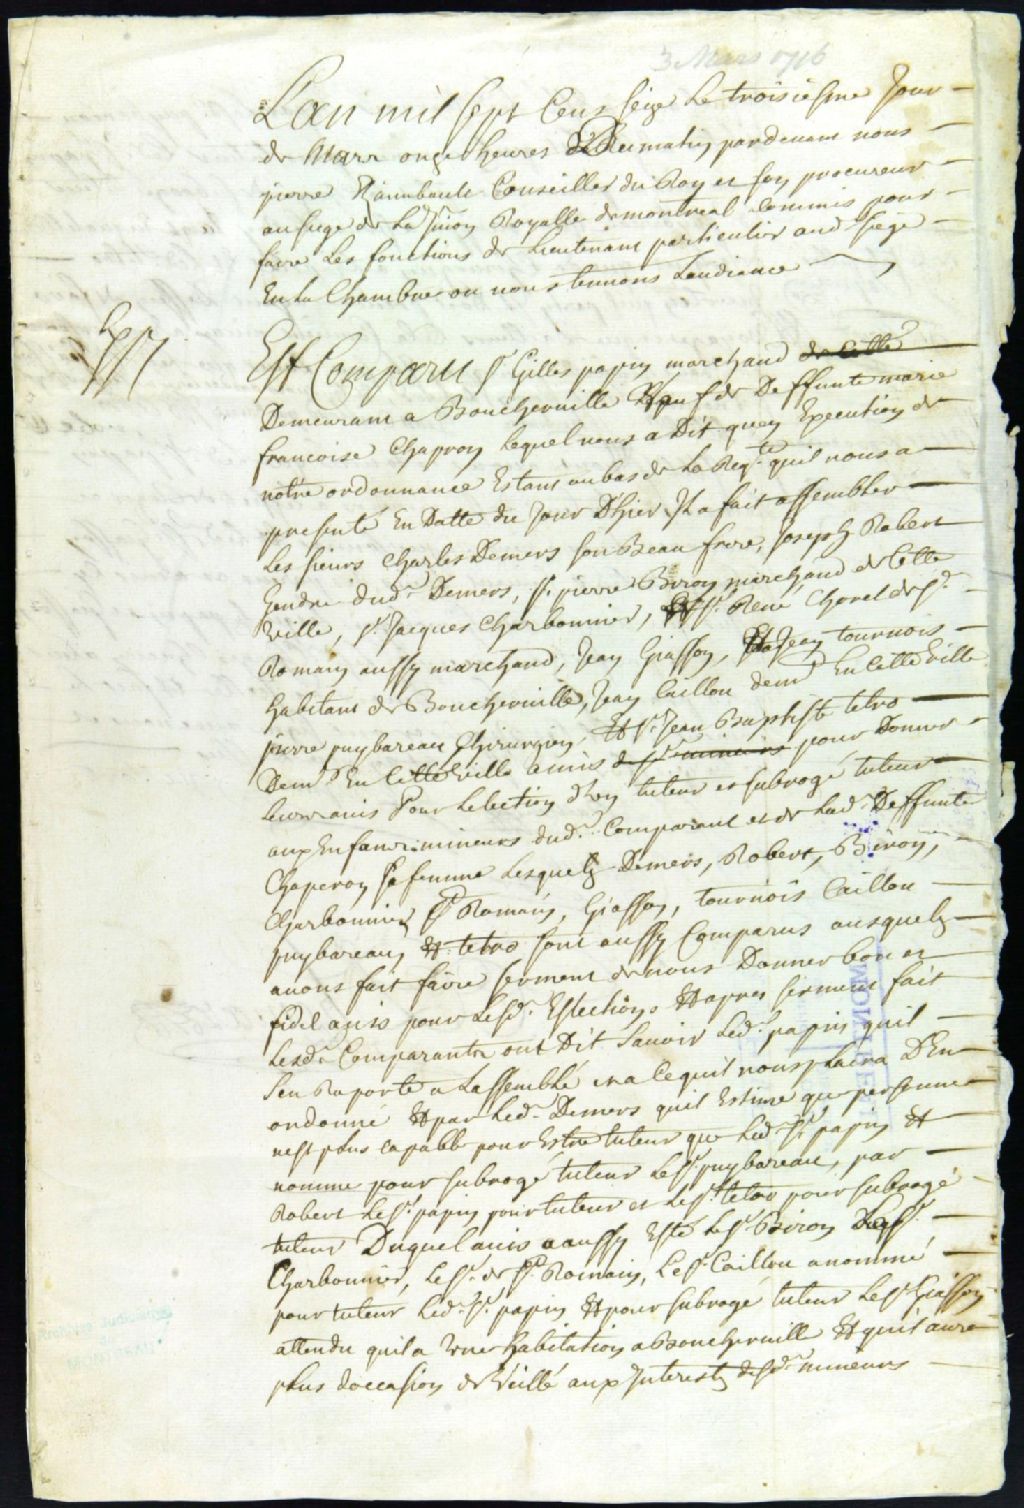 3 Mars 1716
L'an mil sept Cens seize le troisiesme Jour
de Mars onze heures du matin pardevant nous
pierre Raimbault Conseiller du Roy et son procureur
au siege de La Jurion Royalle de montreal commis pour
faire Les fonctions de Lieutenant particulier aud siege
En La Chambre ou nous tennons Laudiance
Est Comparu sr Gilles papin marchand de Cette
Demeurant a Boucherville Veuf de Deffunte marie
francoise Chapron lequel nous a Dit quen Execution de
notre ordonnance Estant au bas de La Reqte quil nous a
presenté En Datte du Jour D'hier Il a fait assembler
Les sieurs Charles Demers son Beau frere, Joseph Robert
Gendre dudt Demers, sr pierre Biron marchand de Cette
Ville, sr Jacques Charbonnier, sr René Chorel de St
Romain aussy marchand, Jean Giasson, Jean tournois
habitant de Boucherville, Jean Caillou demt En Cette Ville
pierre puybareau Chirurgien Et sr Jean Baptiste tetro
Demt En Cette Ville amis des mineurs pour Donner
leurs avis Pour Lelection d'un tuteur et subrogé tuteur
aux Enfans mineurs dudt Comparant et de Lad Deffunte
Chaperon sa femme Lesquelz Demers, Robert, Biron,
Charbonnier St Romain, Giasson, tournois Caillou
puybareau Et tetro sont aussy Comparus ausquelz
avons fait faire serment de nous Donner bon et
fidel avis pour Lesd Eslections Et apres serment fait
Lesd Comparants ont Dit Savoir Led papin quil
sen Raporte a Lassemblé et a Ce quil nous plaira D'En
ordonné Et par Led Demers quil Estime que personne
nest plus capable pour Estre tuteur que Led sr papin Et
nomme pour subrogé tuteur Le sr puybareau, par
Robert Le sr papin pour tuteur et Le sr tetro pour subrogé
tuteur Duquel avis a aussy Esté Le sr Biron Le sr
Charbonnier, Le sr de St Romain, Le sr Caillou a nommé
pour tuteur Led sr papin Et pour subrogé tuteur Le sr Giasson
attendu quil a Une habitation a Boucherville Et quil aura
plus doccasion de Veillé aux Interestz desd mineurs